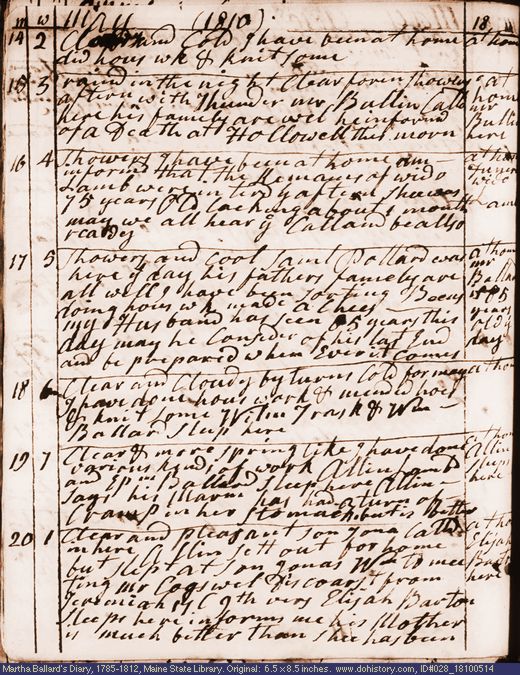 m w May (1810) 18
14 2 Clear and Cold I have been at home at home
did hous wk & knit some
15 3 raind in the night Clear foren Showers at
aftern with Thunder mr Ballin Calld home
here his family are well he informd mr Ballin
of a Death at Hollowell this morn here
16 4 Showers I have been at home am at home
informd that the remaines of wido
Lamb were in terd y aftern she was
75 years old lacking about 1 month Lamb
may we all hear ye Call and be allso
ready
17 5 Showers and Cool Saml Pollard was at home
here ye day his fathers family are mr
all well I have been sorting Beens Ballard
doing hous wk made a Chees is 85
my Husband has seen 85 years this years
day may he Consider of his last End old ye
and be prepared when Ever it Comes day
18 6 Clear and Cloudy by turns Cold for may at home
I have done hous work & mended hoes
& knit some Trask & Wm
Ballard sleep here
19 7 Clear & more spring like I have done at home
various kinds of work Allin Lamb Allin
and Epm Ballard sleep here Allin sleeps
says his marm has had a turn of here
Cramp in her stomach but is better
20 1 Clear and pleasant son Jona Calld at home
in here Allin sett out for home Elijah
but slept at son Jonas Wm to mee Barton
ting mr Cogswel Discoarst from here
Jeremiah 31 C 9th vers Elijah Barton
sleeps here informs me his Mother
is much better than shee has been
Martha Ballard's Diary, 1785-1812, Maine State Library. Original: 6.5 x 8.5 inches. www.dohistory.com, ID#028_18100514